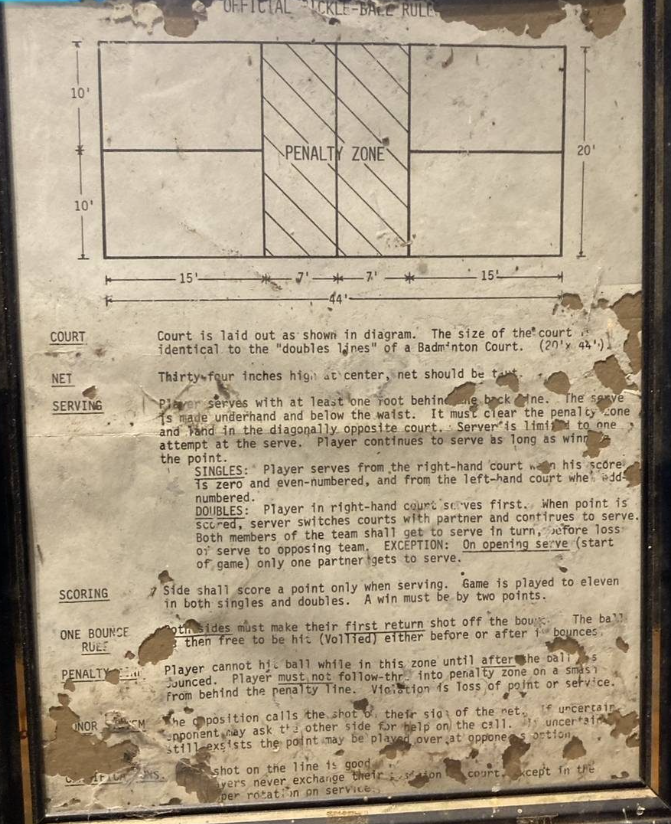 OFFICIAL PICKLE-BALL RULES
10'
PENALTY ZONE
20'
10'
15' 7' 7' 15'
44'
COURT Court is laid out as shown in diagram. The size of the court
identical to the "doubles lines" of a Badminton Court. (20' x 44')
NET Thirty-four inches high at center, net should be taut.
SERVING Player serves with at least one foot behind the back line. The serve
is made underhand and below the waist. It must clear the penalty zone
and land in the diagonally opposite court. Server is limited to one
attempt at the serve. Player continues to serve as long as
the point.
SINGLES: Player serves from the right-hand court when his score
is zero and even-numbered, and from the left-hand court when odd-
numbered.
DOUBLES: Player in right-hand court serves first. When point is
scored, server switches courts with partner and continues to serve.
Both members of the team shall get to serve in turn, before loss
of serve to opposing team. EXCEPTION: On opening serve (start
of game) only one partner gets to serve.
SCORING Side shall score a point only when serving. Game is played to eleven
in both singles and doubles. A win must be by two points.
ONE BOUNCE Both sides must make their first return shot off the bounce. The ball
RULE then free to be hit (Vollied) either before or after it bounces.
PENALTY Player cannot hit ball while in this zone until after the ball has
bounced. Player must not follow-thru into penalty zone on a smash
from behind the penalty line. Violation is loss of point or service.
HONOR SYSTEM The opposition calls the shot on their side of the net. If uncertain
opponent may ask the other side for help on the call. If uncertainty
still exsists the point may be played over at opponents option.
shot on the line is good
players never exchange their position court, except in the
proper rotation on service.